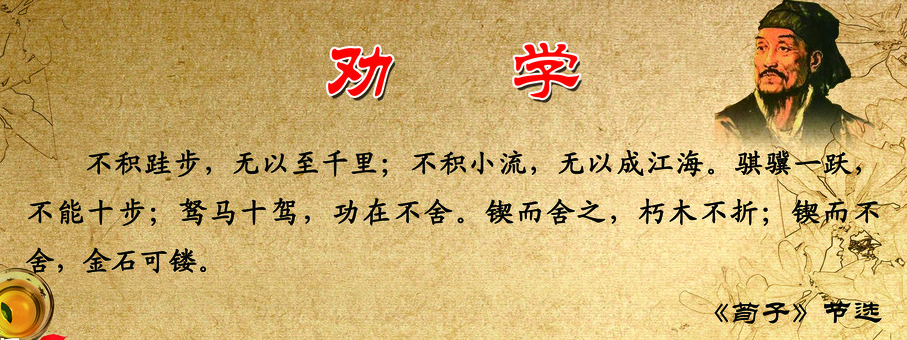 劝 学
不积跬步，无以至千里；不积小流，无以成江海。骐骥一跃，
不能十步；驽马十驾，功在不舍。锲而舍之，朽木不折；锲而不
舍，金石可镂。
《荀子》节选